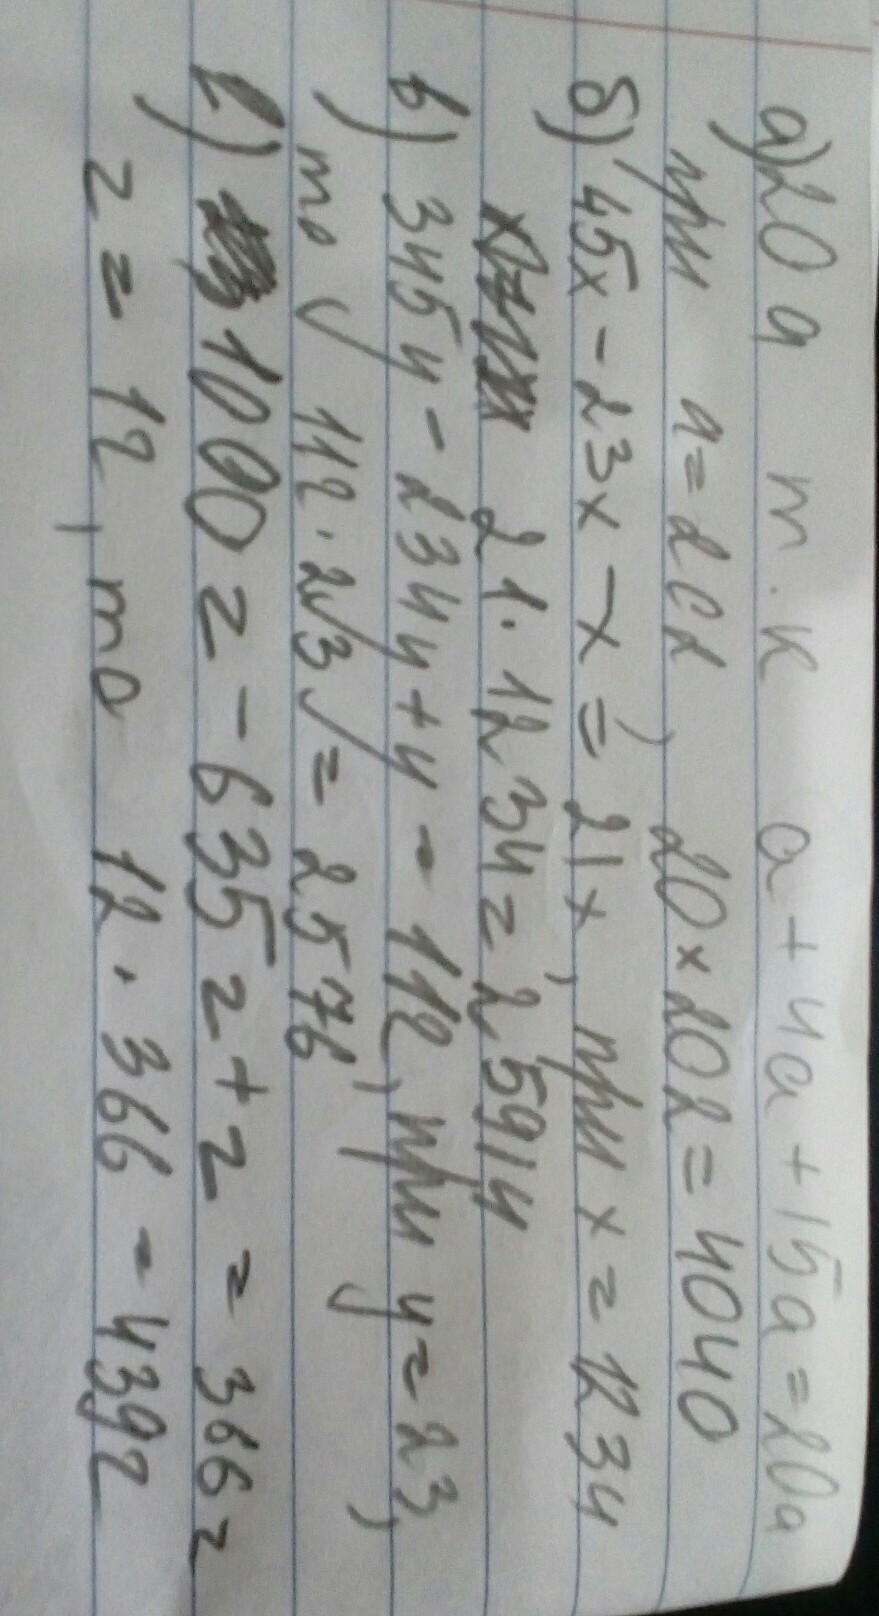 а) 20 а т.к а + 4а + 15а = 20а
при а = 202, 20 × 202 = 4040
б) 45х - 23х - х = 21х, при х = 1234
21 · 1234 = 25914
в) 345у - 234у + у = 112, при у = 23,
то 112 · 23 = 2576
г) 1000z - 635z + z = 366z
z = 12, то 12 · 366 = 4392